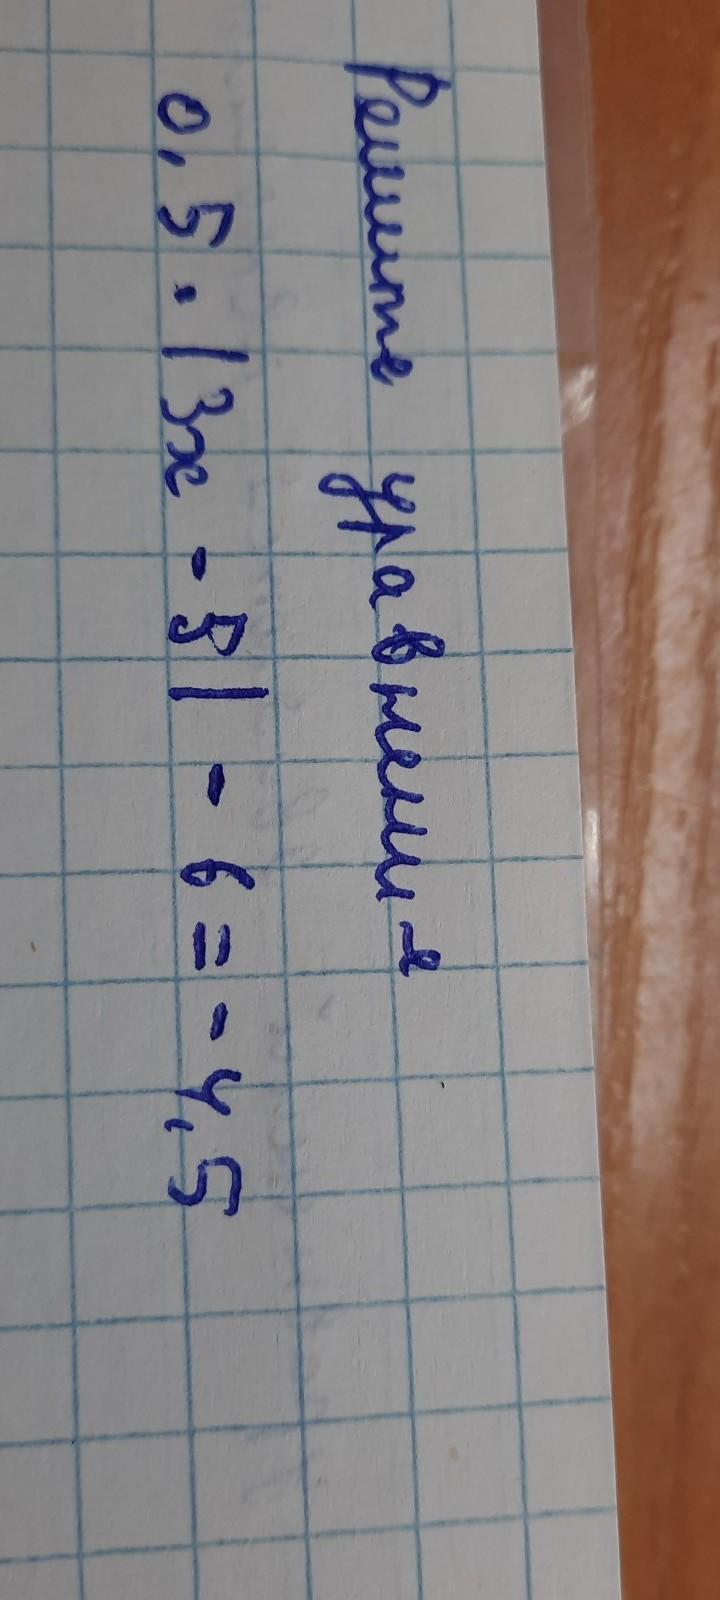 Решите уравнение
0,5 · |3x - 5| - 6 = - 4,5